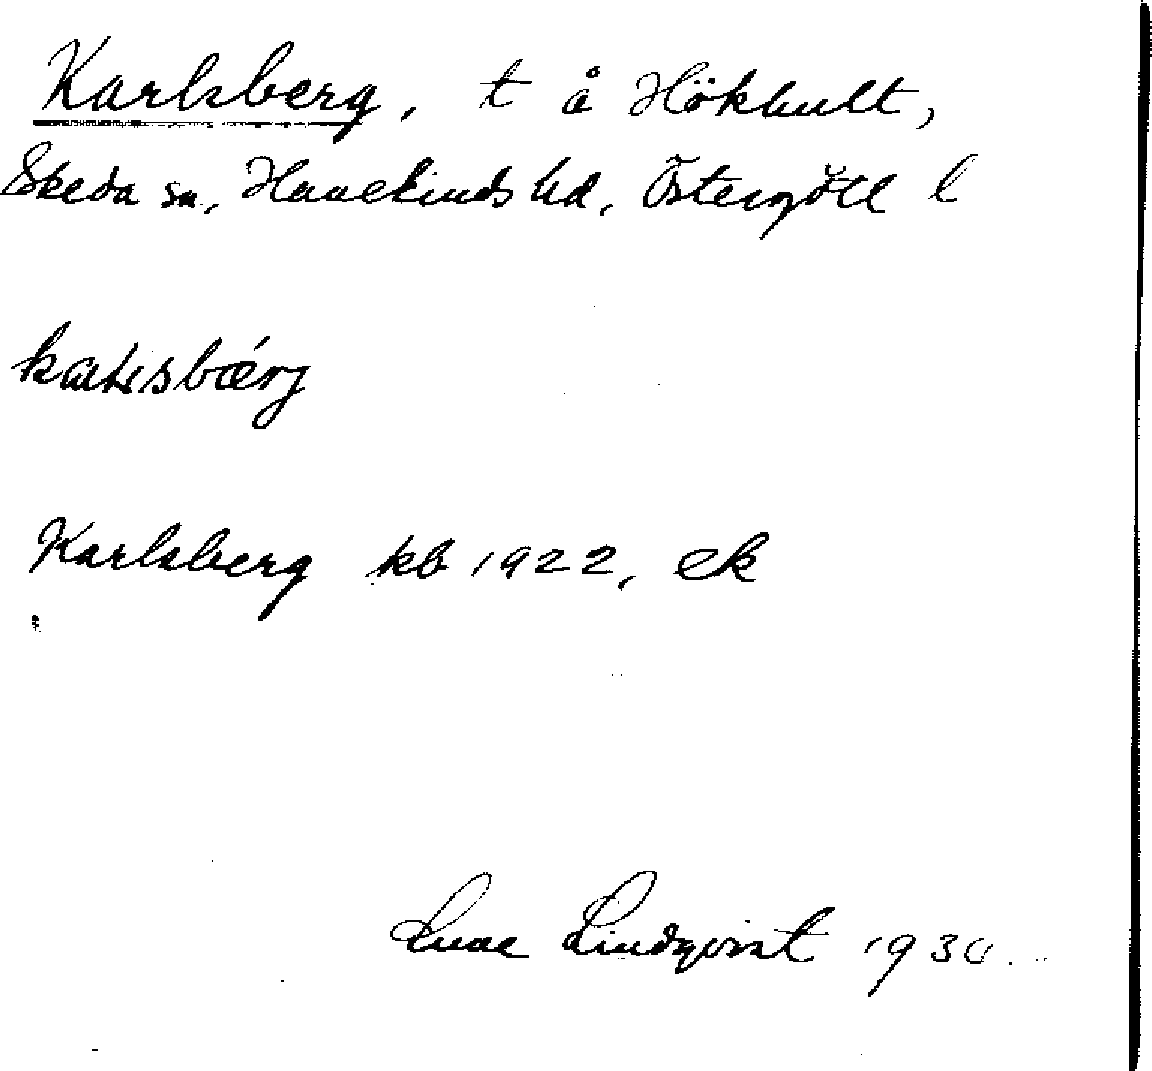 Karlsberg, t å Hökhult,
Skeda sn, Hanekinds hd, Östergötl l
Karlsberg kb 1922, ek
Lindqvist 1930